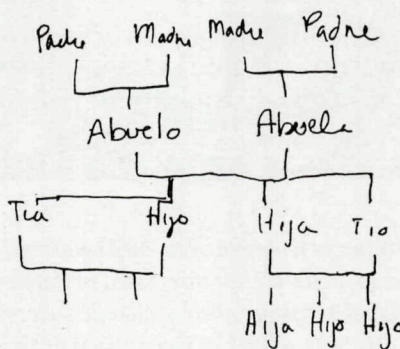 Padre Madre Madre Padre
Abuelo Abuela
Tia Hijo Hija Tio
Hija Hijo Hijo